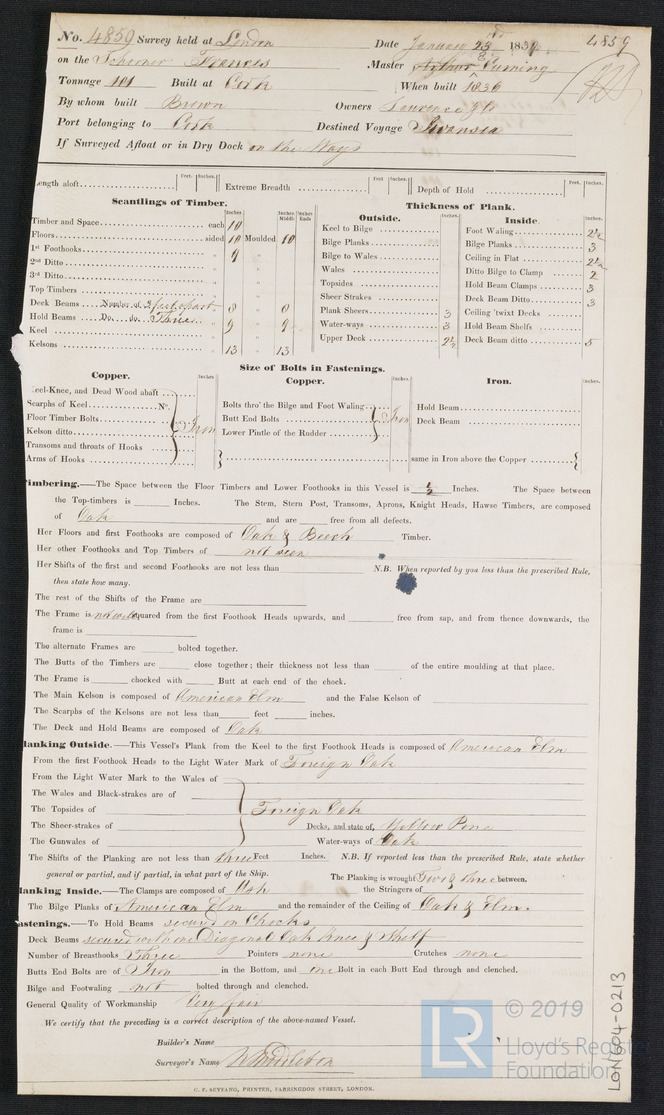 No. 4859 Survey held at London Date January 23rd 1839 4859
on the Schooner Frances Master Arthur Cuming
Tonnage 101 Built at Cork When built 1836
By whom built Brown Owners Laurence & Co
Port belonging to Cork Destined Voyage Swansea
If Surveyed Afloat or in Dry Dock on the Ways
ength aloft Feet. Inches. Extreme Breadth Feet Inches. Depth of Hold Feet. Inches.
Scantlings of Timber. Thickness of Plank.
Inches Inches Middle Inches Ends Outside. Inches. Inside. Inches.
Timber and Space each 10 Keel to Bilge Foot Waling 2½
Floors sided 10 Moulded 10 Bilge Planks Bilge Planks 3
1st Foothooks " 9 " Bilge to Wales Ceiling in Flat 2½
2nd Ditto " " Wales Ditto Bilge to Clamp 2
3rd Ditto " " Topsides Hold Beam Clamps 3
Top Timbers " " Sheer Strakes Deck Beam Ditto 3
Deck Beams Number of " 8 " 8 Plank Sheers 3 Ceiling 'twixt Decks
Hold Beams Do. do. Three " 9 " 9 Water-ways 3 Hold Beam Shelfs
Keel " " Upper Deck 2½ Deck Beam ditto 5
Kelsons 13 " 13
Size of Bolts in Fastenings.
Copper. Inches Copper. Inches Iron. Inches.
eel-Knee, and Dead Wood abaft
Scarphs of Keel No. Bolts thro' the Bilge and Foot Waling Hold Beam
Floor Timber Bolts Iron Butt End Bolts Iron Deck Beam
Kelson ditto Lower Pintle of the Rudder
Transoms and throats of Hooks
Arms of Hooks same in Iron above the Copper
imbering.—The Space between the Floor Timbers and Lower Foothooks in this Vessel is ½ Inches. The Space between
the Top-timbers is Inches. The Stem, Stern Post, Transoms, Aprons, Knight Heads, Hawse Timbers, are composed
of Oak and are free from all defects.
Her Floors and first Foothooks are composed of Oak & Beech Timber.
Her other Foothooks and Top Timbers of not seen
Her Shifts of the first and second Foothooks are not less than N.B. When reported by you less than the prescribed Rule,
then state how many.
The rest of the Shifts of the Frame are
The Frame is not well squared from the first Foothook Heads upwards, and free from sap, and from thence downwards, the
frame is
The alternate Frames are bolted together.
The Butts of the Timbers are close together; their thickness not less than of the entire moulding at that place.
The Frame is chocked with Butt at each end of the chock.
The Main Kelson is composed of American Elm and the False Kelson of
The Scarphs of the Kelsons are not less than feet inches.
The Deck and Hold Beams are composed of Oak
lanking Outside.—This Vessel's Plank from the Keel to the first Foothook Heads is composed of American Elm
From the first Foothook Heads to the Light Water Mark of Foreign Oak
From the Light Water Mark to the Wales of
The Wales and Black-strakes are of
The Topsides of Foreign Oak
The Sheer-strakes of Decks, and state of, Yellow Pine
The Gunwales of Water-ways of Oak
The Shifts of the Planking are not less than three Feet Inches. N.B. If reported less than the prescribed Rule, state whether
general or partial, and if partial, in what part of the Ship. The Planking is wrought Two & Three between.
lanking Inside.—The Clamps are composed of the Stringers of
The Bilge Planks of American Elm and the remainder of the Ceiling of Oak & Elm.
astenings.—To Hold Beams secured on Chocks
Deck Beams secured with one Diagonal Oak Knee & Shelf
Number of Breasthooks Three Pointers none Crutches none
Butts End Bolts are of Iron in the Bottom, and one Bolt in each Butt End through and clenched.
Bilge and Footwaling not bolted through and clenched.
General Quality of Workmanship Very fair
We certify that the preceding is a correct description of the above-named Vessel.
Builder's Name
Surveyor's Name W Middleton
C. F. SEYFANG, PRINTER, FARRINGDON STREET, LONDON.
LR © 2019
Lloyd's Register
Foundation
LON604-0213